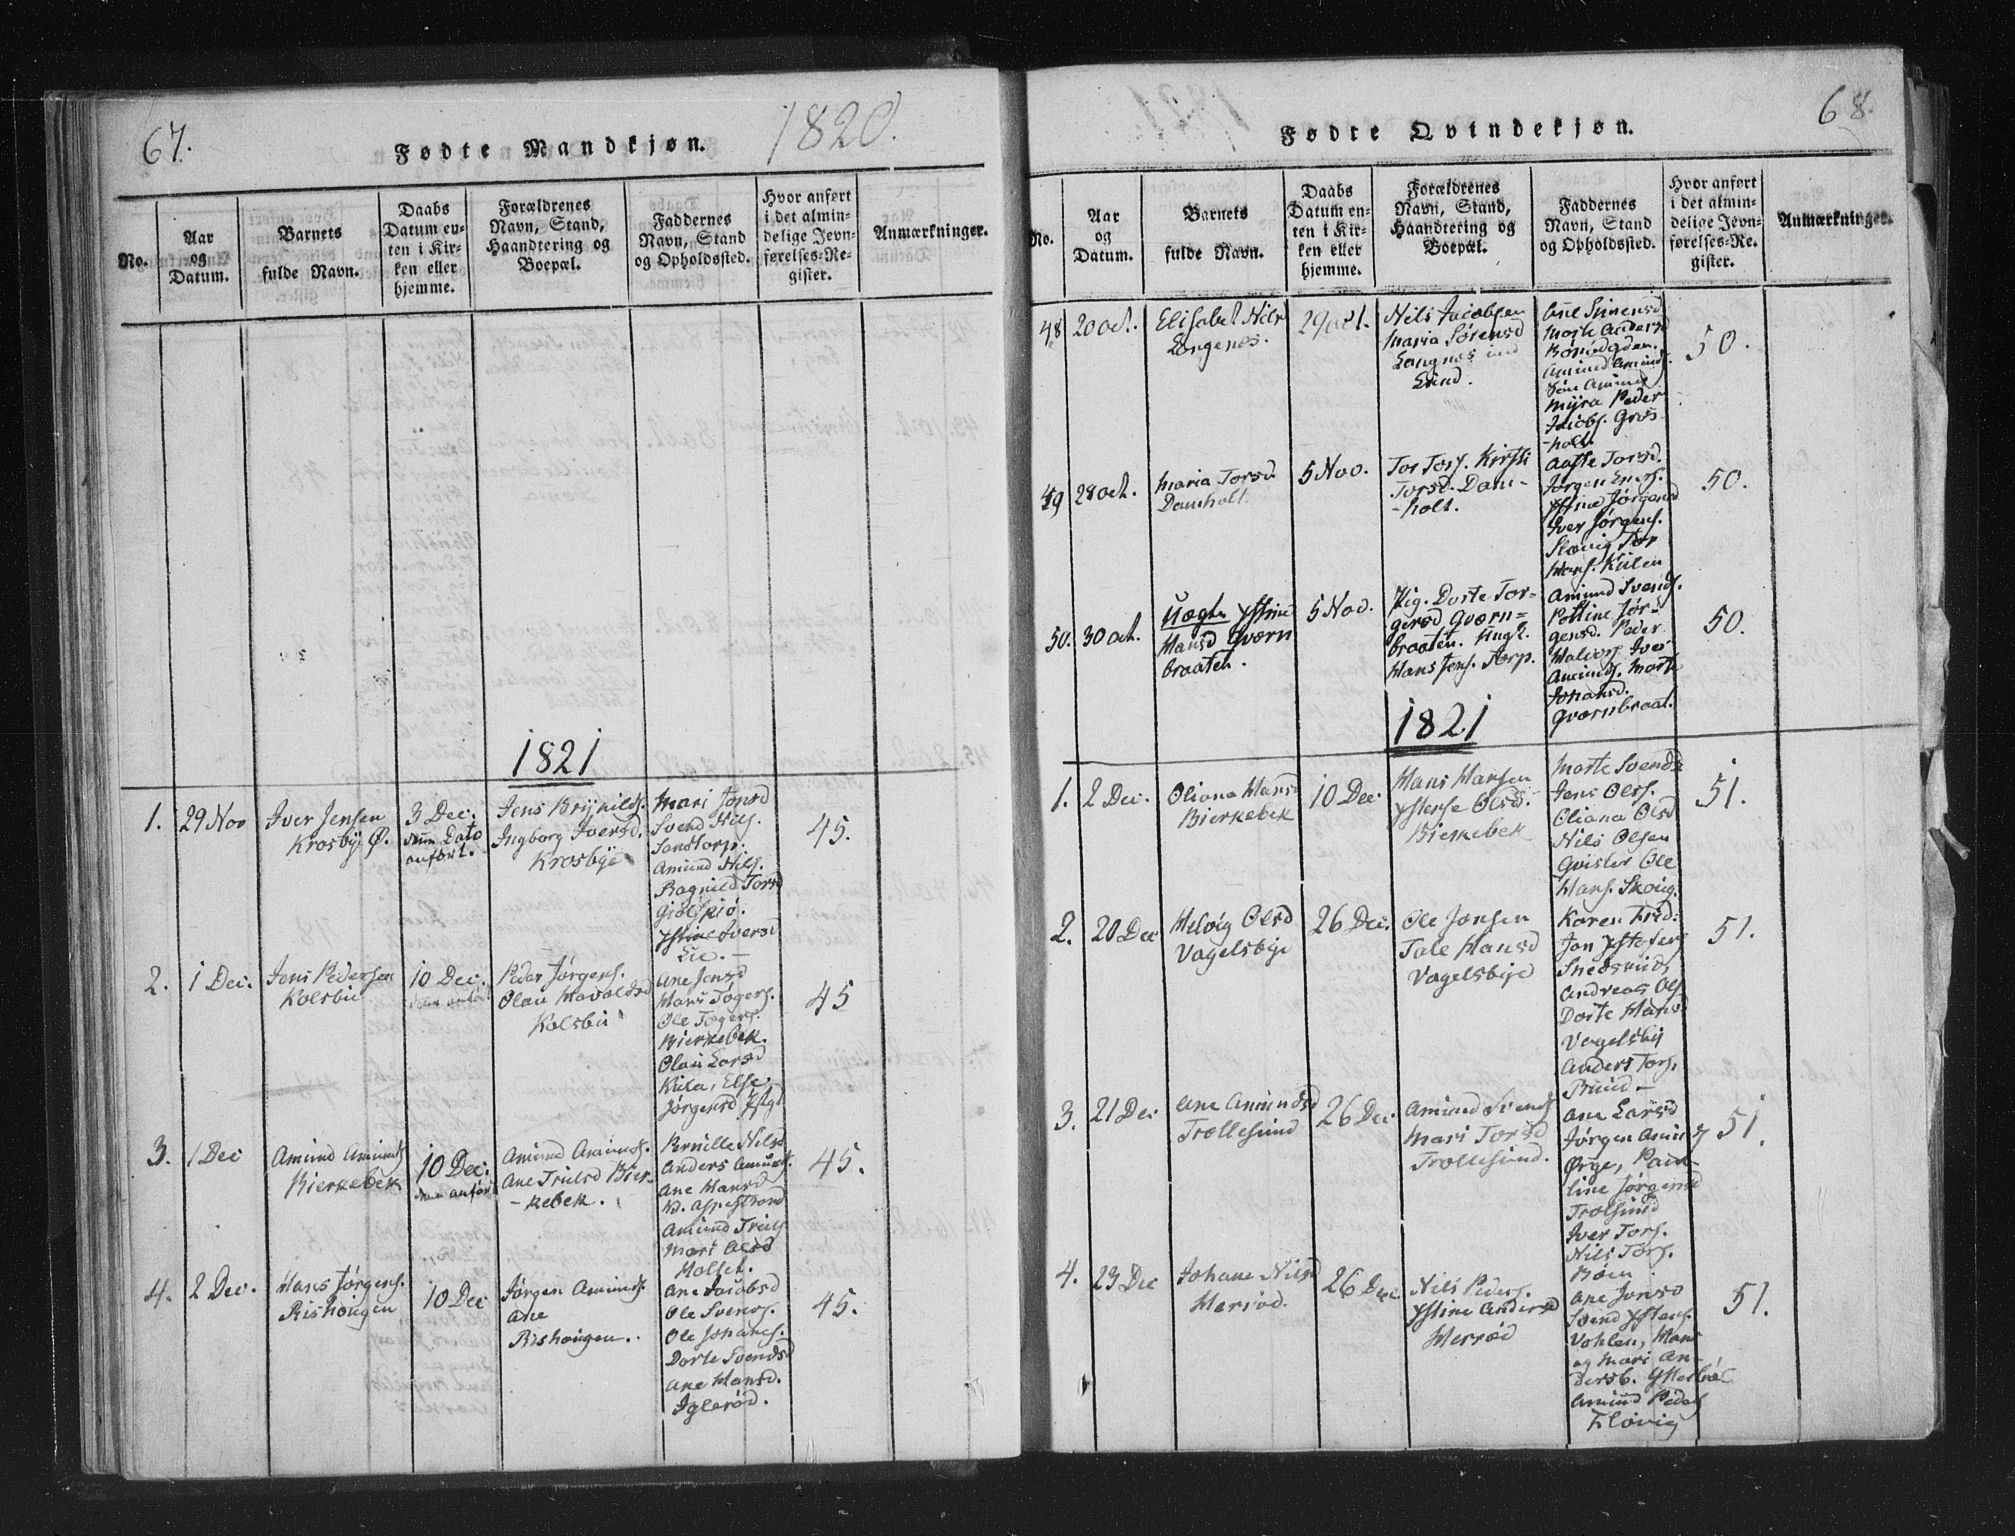 67.
Fødte Mandkjøn.
1820.
No.
Aar og Datum.
Barnets fulde Navn.
Daabs Datum enten i Kirken eller hjemme.
Forældrenes Navn, Stand, Haandtering og Boepæl.
Faddernes Navn, Stand og Opholdssted.
Hvor anført i det almindelige Jevnførelses-Register.
Anmærkninger.
1821
1.
29 Nov
Iver Jensen
Krosbye Ø.
3 Dec.
Dato
anført.
Jens Brynilds.
Ingborg Iversd.
Krosbye
Mari Jonsd
Svend Nils.
Sandtorp.
Amund Nils.
Ragnild Torsd
Giølsiø.
Iversd
Lie.
45.
2.
1 Dec.
Jens Pedersen
Kolsbu
10 Dec.
anført
Peder Jørgens.
Olau Havoldsd
Kolsbu
Ane Jensd
Hans Tøgers.
Ole Togers.
Bierkebek.
Olau Larsd
Kula, Else
Jørgensd
45
3.
1 Dec
Amund Amunds
Bierkebek
10 Dec.
anført
Amund Amunds.
Ane Trulsd Bier-
-kebek.
Pernille Nilsd
Anders Amunds.
Ane Hansd
Amund Truls
Mari Olsd
Holset.
45.
4.
2 Dec.
Hans Jørgens.
Rishougen
10 Dec
Jørgen Amunds.
Ane
Rishougen.
Ane Jacobsd
Ole Svends.
Ole Johanes.
Dorte Svendsd
Ane Hansd.
Iglerød.
45.
68.
Fødte Qvindekjøn.
No.
Aar og Datum.
Barnets fulde Navn.
Daabs Datum enten i Kirken eller hjemme.
Forældrenes Navn, Stand, Haandtering og Boepæl.
Faddernes Navn, Stand og Opholdssted.
Hvor anført i det almindelige Jevnførelses-Register.
Anmærkninger.
48
20 Oct.
Elisabet Nils
Langenes.
29 Oct.
Nils Jacobsen
Maria Sørensd
Langnes ind
Lund.
Ane Simensd
Marte Andersd
Amund Amunds.
Amund
Myra Peder
Jacobs. Gros-
-holt.
50.
49
28 Oct.
Maria Torsd.
Damholt.
5 Nov.
Tor Tors. Kirsti
Torsd. Dam-
-holt.
Aaste Torsd.
Jørgen Eners.
Jørgensd
Iver Jørgens.
Slævig Tor
Hans. Kulen
50.
50.
30 Oct.
Uægte
Hansd Qværn
braaten.
5 Nov.
Pig. Dorte Tor-
gersd Qværn-
braaten. Ungk.
Hans Jens. Torp.
Amund Svends.
Jør-
gensd. Peder
Halvors Iver
Amunds. Marte
Johansd.
Qværnbraat.
50.
1821
1.
2 Dec.
Oliana Hansd
Bierkebek
10 Dec
Hans Hansen
Olsd.
Bierkebek
Marte Svendsd
Jens Ols.
Oliana Olsd
Nils Olsen
Qvisler Ole
Hans. Skoug.
51.
2.
20 Dec
Helvig Olsd
Vagelsbye
26 Dec.
Ole Jonsen
Tale Hansd
Vagelsbye
Karen Frid-
Jon
Snedsrud,
Andreas Ols
Dorte Hansd
Vagelsby
Anders Tors.
Buud
51.
3.
21 Dec
Ane Amundsd
Trollesund
26 Dec
Amund Svends
Mari Torsd
Trollesund.
Ane Larsd
Jørgen Amunds
Ørge, Pau-
line Jørgensd
Trolsund
Iver Tors.
Nils Tors.
Bøen.
51.
4.
23 Dec
Johane Nilsd
Herrød.
26 Dec.
Nils Peders.
Andersd
Herrød
Ane Jonsd
Svend
Vohlen, Hans
og Mari An-
dersb. Ytterbøl
Amund Peders
Fløvig
51.